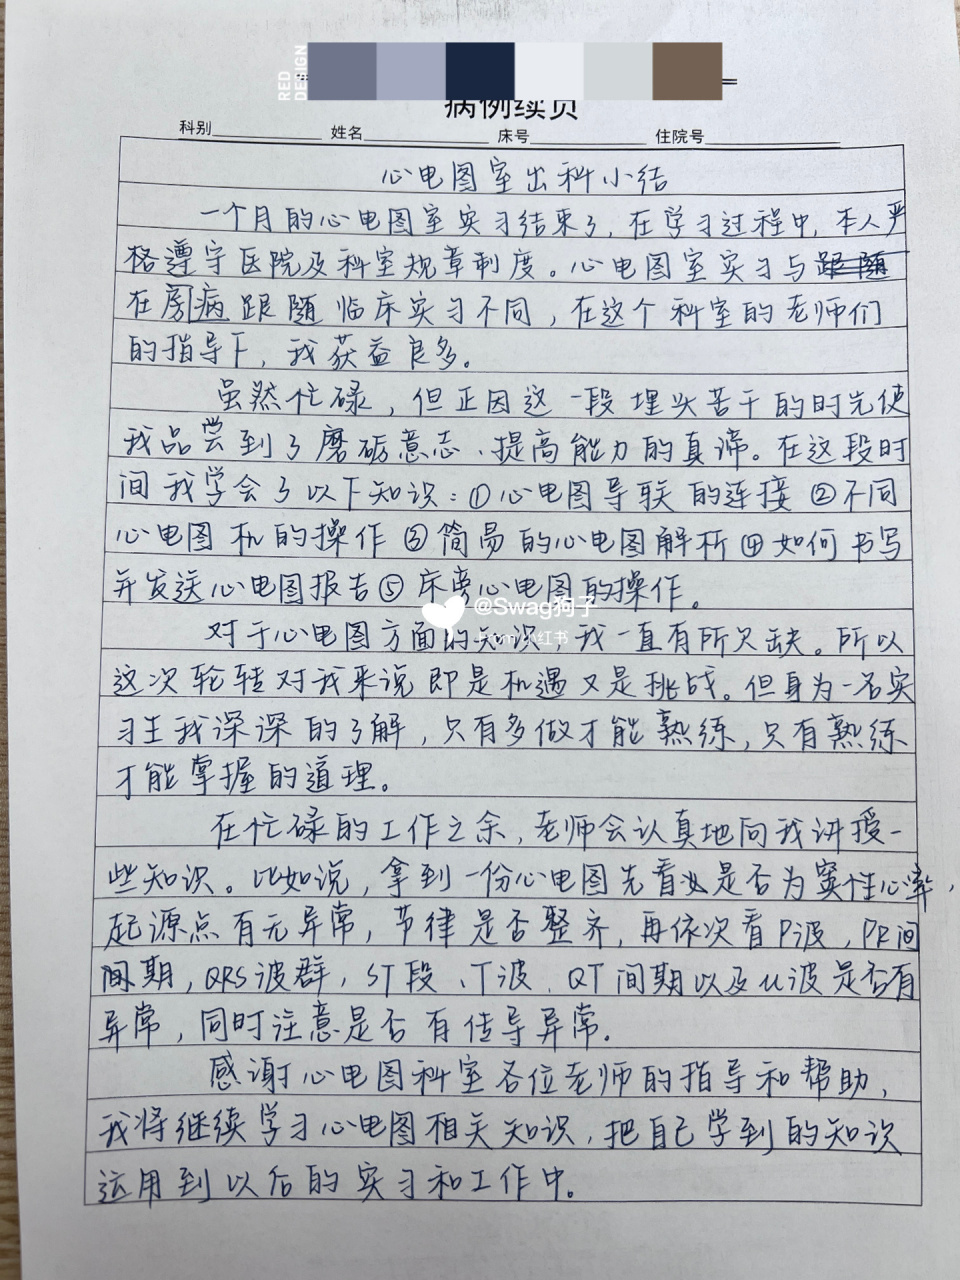 RED DESIGN
病例续页
科别 姓名 床号 住院号
心电图室出科小结
一个月的心电图室实习结束了,在学习过程中,本人严
格遵守医院及科室规章制度。心电图室实习与跟随
在剧病跟随临床实习不同,在这个科室的老师们
的指导下,我获益良多。
虽然忙碌,但正因这一段埋头苦干的时光使
我品尝到了磨砺意志、提高能力的真谛。在这段时
间我学会了以下知识:①心电图导联的连接②不同
心电图机的操作③简易的心电图解析④如何书写
并发送心电图报告⑤床旁心电图的操作。
@Swag狗子
From 小红书
对于心电图方面的知识,我一直有所欠缺。所以
这次轮转对我来说即是机遇又是挑战。但身为一名实
习生我深深的了解,只有多做才能熟练,只有熟练
才能掌握的道理。
在忙碌的工作之余,老师会认真地向我讲授一
些知识。比如说,拿到一份心电图先看是否为窦性心率,
起源点有无异常,节律是否整齐,再依次看P波,PR间
间期,QRS波群,ST段、T波、QT间期以及u波是否有
异常,同时注意是否有传导异常.
感谢心电图科室各位老师的指导和帮助,
我将继续学习心电图相关知识,把自己学到的知识
运用到以后的实习和工作中。